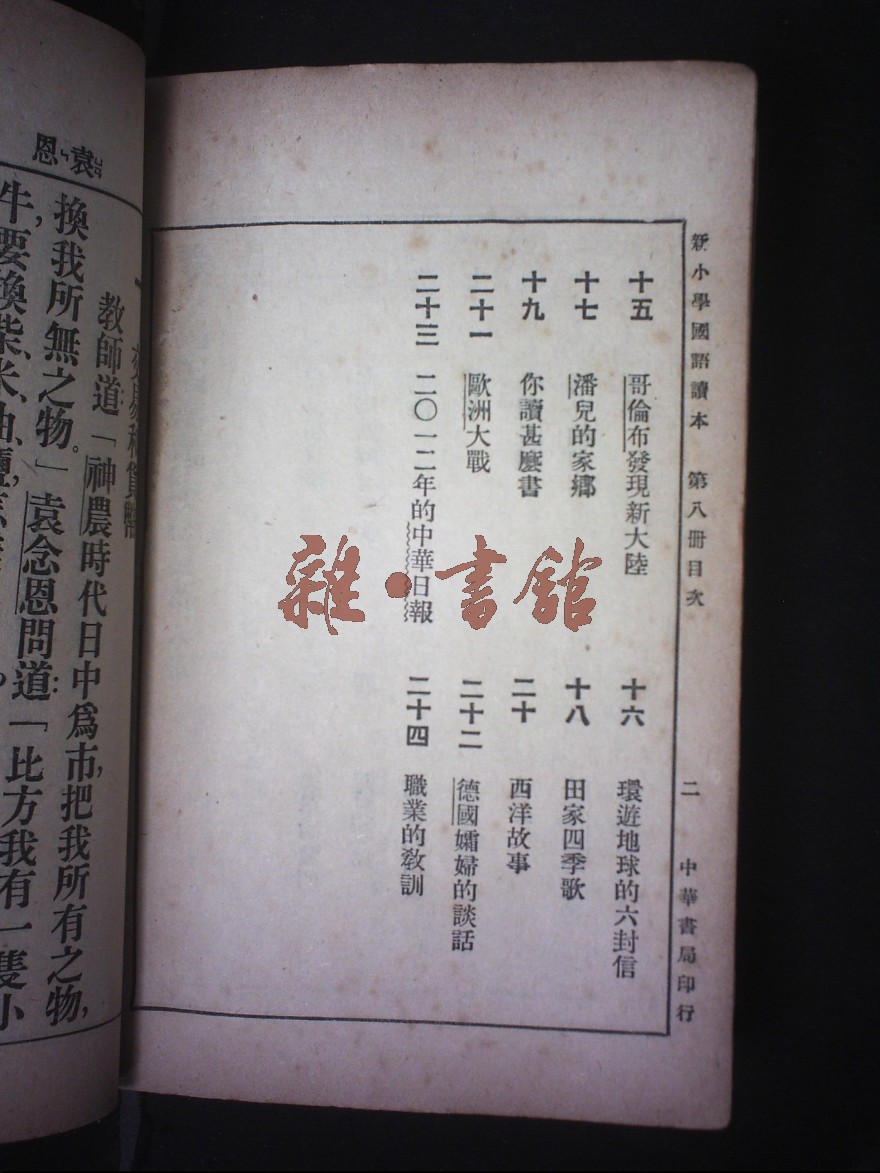 新小學國語讀本 第八冊目次 二 中華書局印行
十五 哥倫布發現新大陸
十六 環遊地球的六封信
十七 潘兒的家鄉
十八 田家四季歌
十九 你讀甚麼書
二十 西洋故事
二十一 歐洲大戰
二十二 德國孀婦的談話
二十三 二〇一二年的中華日報
二十四 職業的教訓
雜·書館
教師道:「神農時代日中為市,把我所有之物,
換我所無之物。」袁念恩問道:「比方我有一隻小
牛,要換柴、米、油、鹽,
袁ㄩㄢ
恩ㄣ